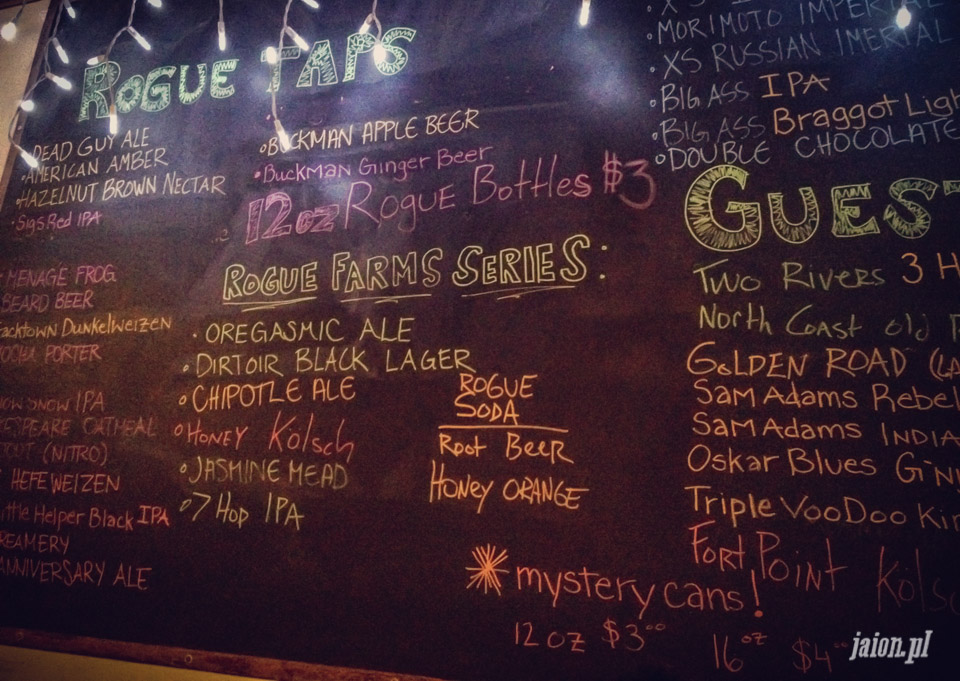 ROGUE TAPS
• DEAD GUY ALE
• AMERICAN AMBER
• HAZELNUT BROWN NECTAR
• Sigs Red IPA
MENAGE FROG
BEARD BEER
Dunkelweizen
PORTER
SNOW IPA
OATMEAL
(NITRO)
HEFEWEIZEN
Helper Black IPA
ANNIVERSARY ALE
• BUCKMAN APPLE BEER
• Buckman Ginger Beer
12oz Rogue Bottles $3
ROGUE FARMS SERIES:
• OREGASMIC ALE
• DIRTOIR BLACK LAGER
• CHIPOTLE ALE
• HONEY Kölsch
• JASMINE MEAD
• 7 HOP IPA
ROGUE
SODA
Root BEER
HONEY ORANGE
* mystery cans!
12 oz $3.00
16 oz $4
• MORIMOTO
• XS RUSSIAN IMERIAL
• BIG ASS IPA
• BIG ASS Braggot
• DOUBLE CHOCOLATE
GUEST
TWO RIVERS 3
North Coast old
GOLDEN ROAD
SAM ADAMS Rebel
SAM ADAMS INDIA
OSKAR BLUES
Triple VooDoo
Fort Point Kölsc
jaion.pl